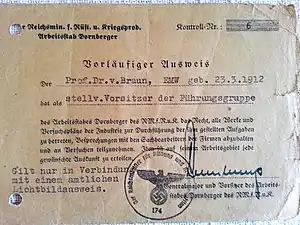 Reichsmin. f. Rüst. u. Kriegsprod.
Arbeitsstab Dornberger
Kontroll-Nr.: 6
Vorläufiger Ausweis
Der Prof.Dr.v.Braun, EMW geb. 23.3.1912
hat als stellv.Vorsitzer der Führungsgruppe
des Arbeitsstabes Dornberger des RMf.R.u.K. das Recht, alle Werke und
Versuchsplätze der Industrie zur Durchführung der ihm gestellten Aufgaben
zu betreten, Besprechungen mit den Sachbearbeitern der Firmen abzuhalten
und an Versuchen teilzunehmen. Ihm ist auf seinem Arbeitsgebiet jede
gewünschte Auskunft zu erteilen.
Gilt nur in Verbindung
mit einem amtlichen
Lichtbildausweis.
174
Generalmajor und Vorsitzer des Arbeits-
stabes Dornberger des RMf.R.u.K.